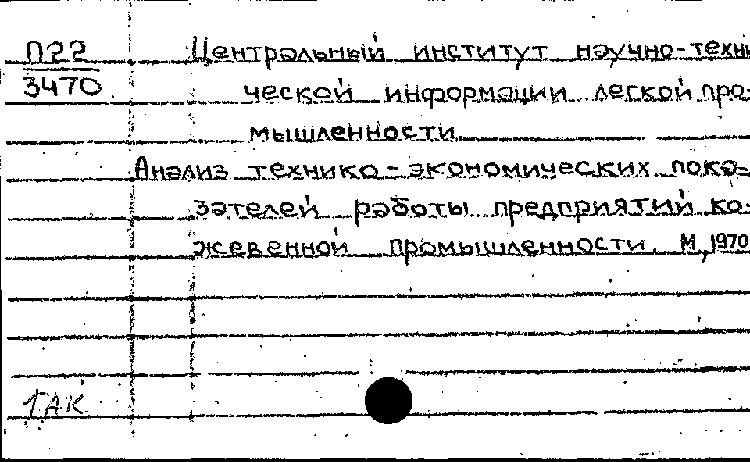 П22 Центральный институт научно-техни
3470 ческой информации легкой про-
мышленности
Анализ технико-экономических пока-
зателей работы предприятий ко-
жевенной промышленности. М, 1970
1АК